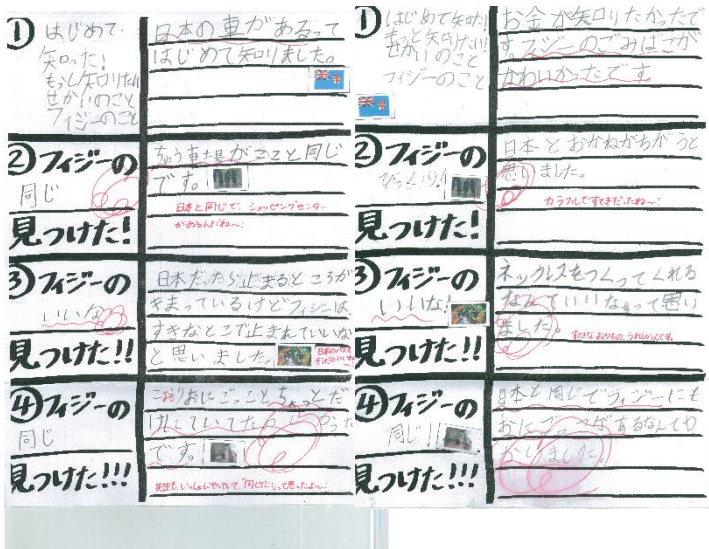 ① はじめて
知った!
もっと知りたい!
せかいのこと
フィジーのこと
日本の車があるって
はじめて知りました。
② フィジーの
同じ
見つけた!
ちゅう車場がここと同じ
です。
日本と同じで、ショッピングセンター
があるんだね〜!
③ フィジーの
いいな
見つけた!!
日本だったら止まるところが
きまっているけどフィジーは
すきなとこで止まれていいな
と思いました。
④ フィジーの
同じ
見つけた!!!
こおりおにごっことちょっとだ
けにていてた
です。
先生も、いっしょにやっていて、「同じだ」って思ったよ〜!
① はじめて知った!
もっと知りたい!
せかいのこと
フィジーのこと
お金が知りたかったで
す。フィジーのごみばこが
かわいかったです。
② フィジーの
びっくり!
見つけた!
日本とおかねがちがうと
思いました。
カラフルですてきだったね〜!
③ フィジーの
いいな!
見つけた!!
ネックレスをつくってくれる
なんていいなぁって思い
ました。
うれしかったです。
④ フィジーの
同じ!!
見つけた!!!
日本と同じでフィジーにも
おにごっこがあるなんて
しました。